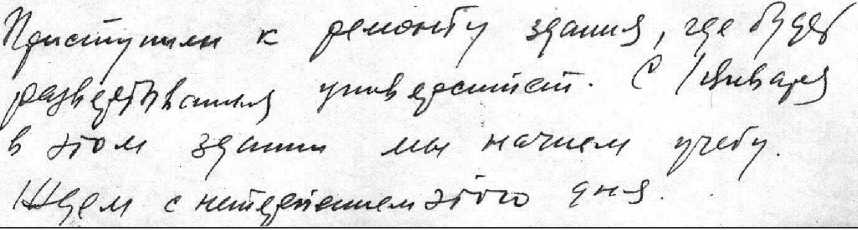 Приступили к ремонту здания, где будет
развертываться университет. С 1 января
в этом здании мы начнем учебу.
Ждем с нетерпением этого дня.